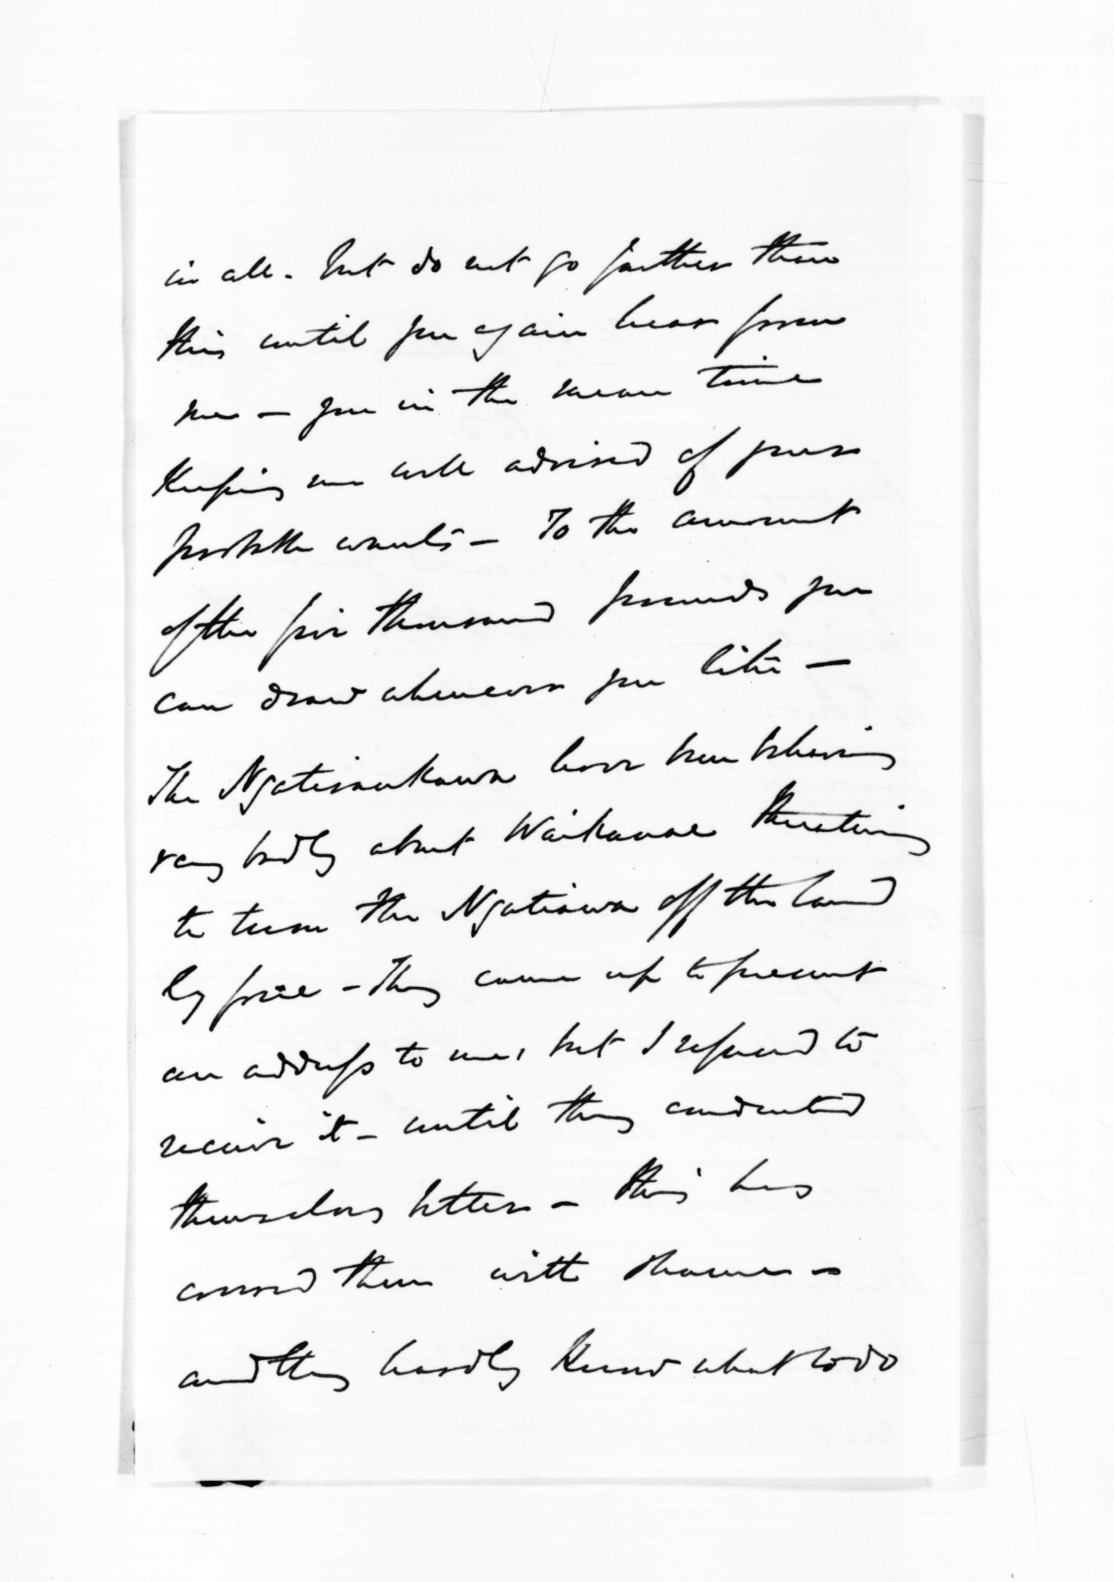 in all. but do not go further than
this until you again hear from
me — you in the mean time
keeping me well advised of your
probable wants — To the amount
of the five thousand pounds you
can draw whenever you like —
The Ngatiraukawa have been behaving
very badly about Waikanae threatening
to turn the Ngatiawa off the land
by force — They came up to present
an address to me, but I refused to
receive it — until they conducted
themselves better — this has
covered them with shame —
and they hardly know what to do